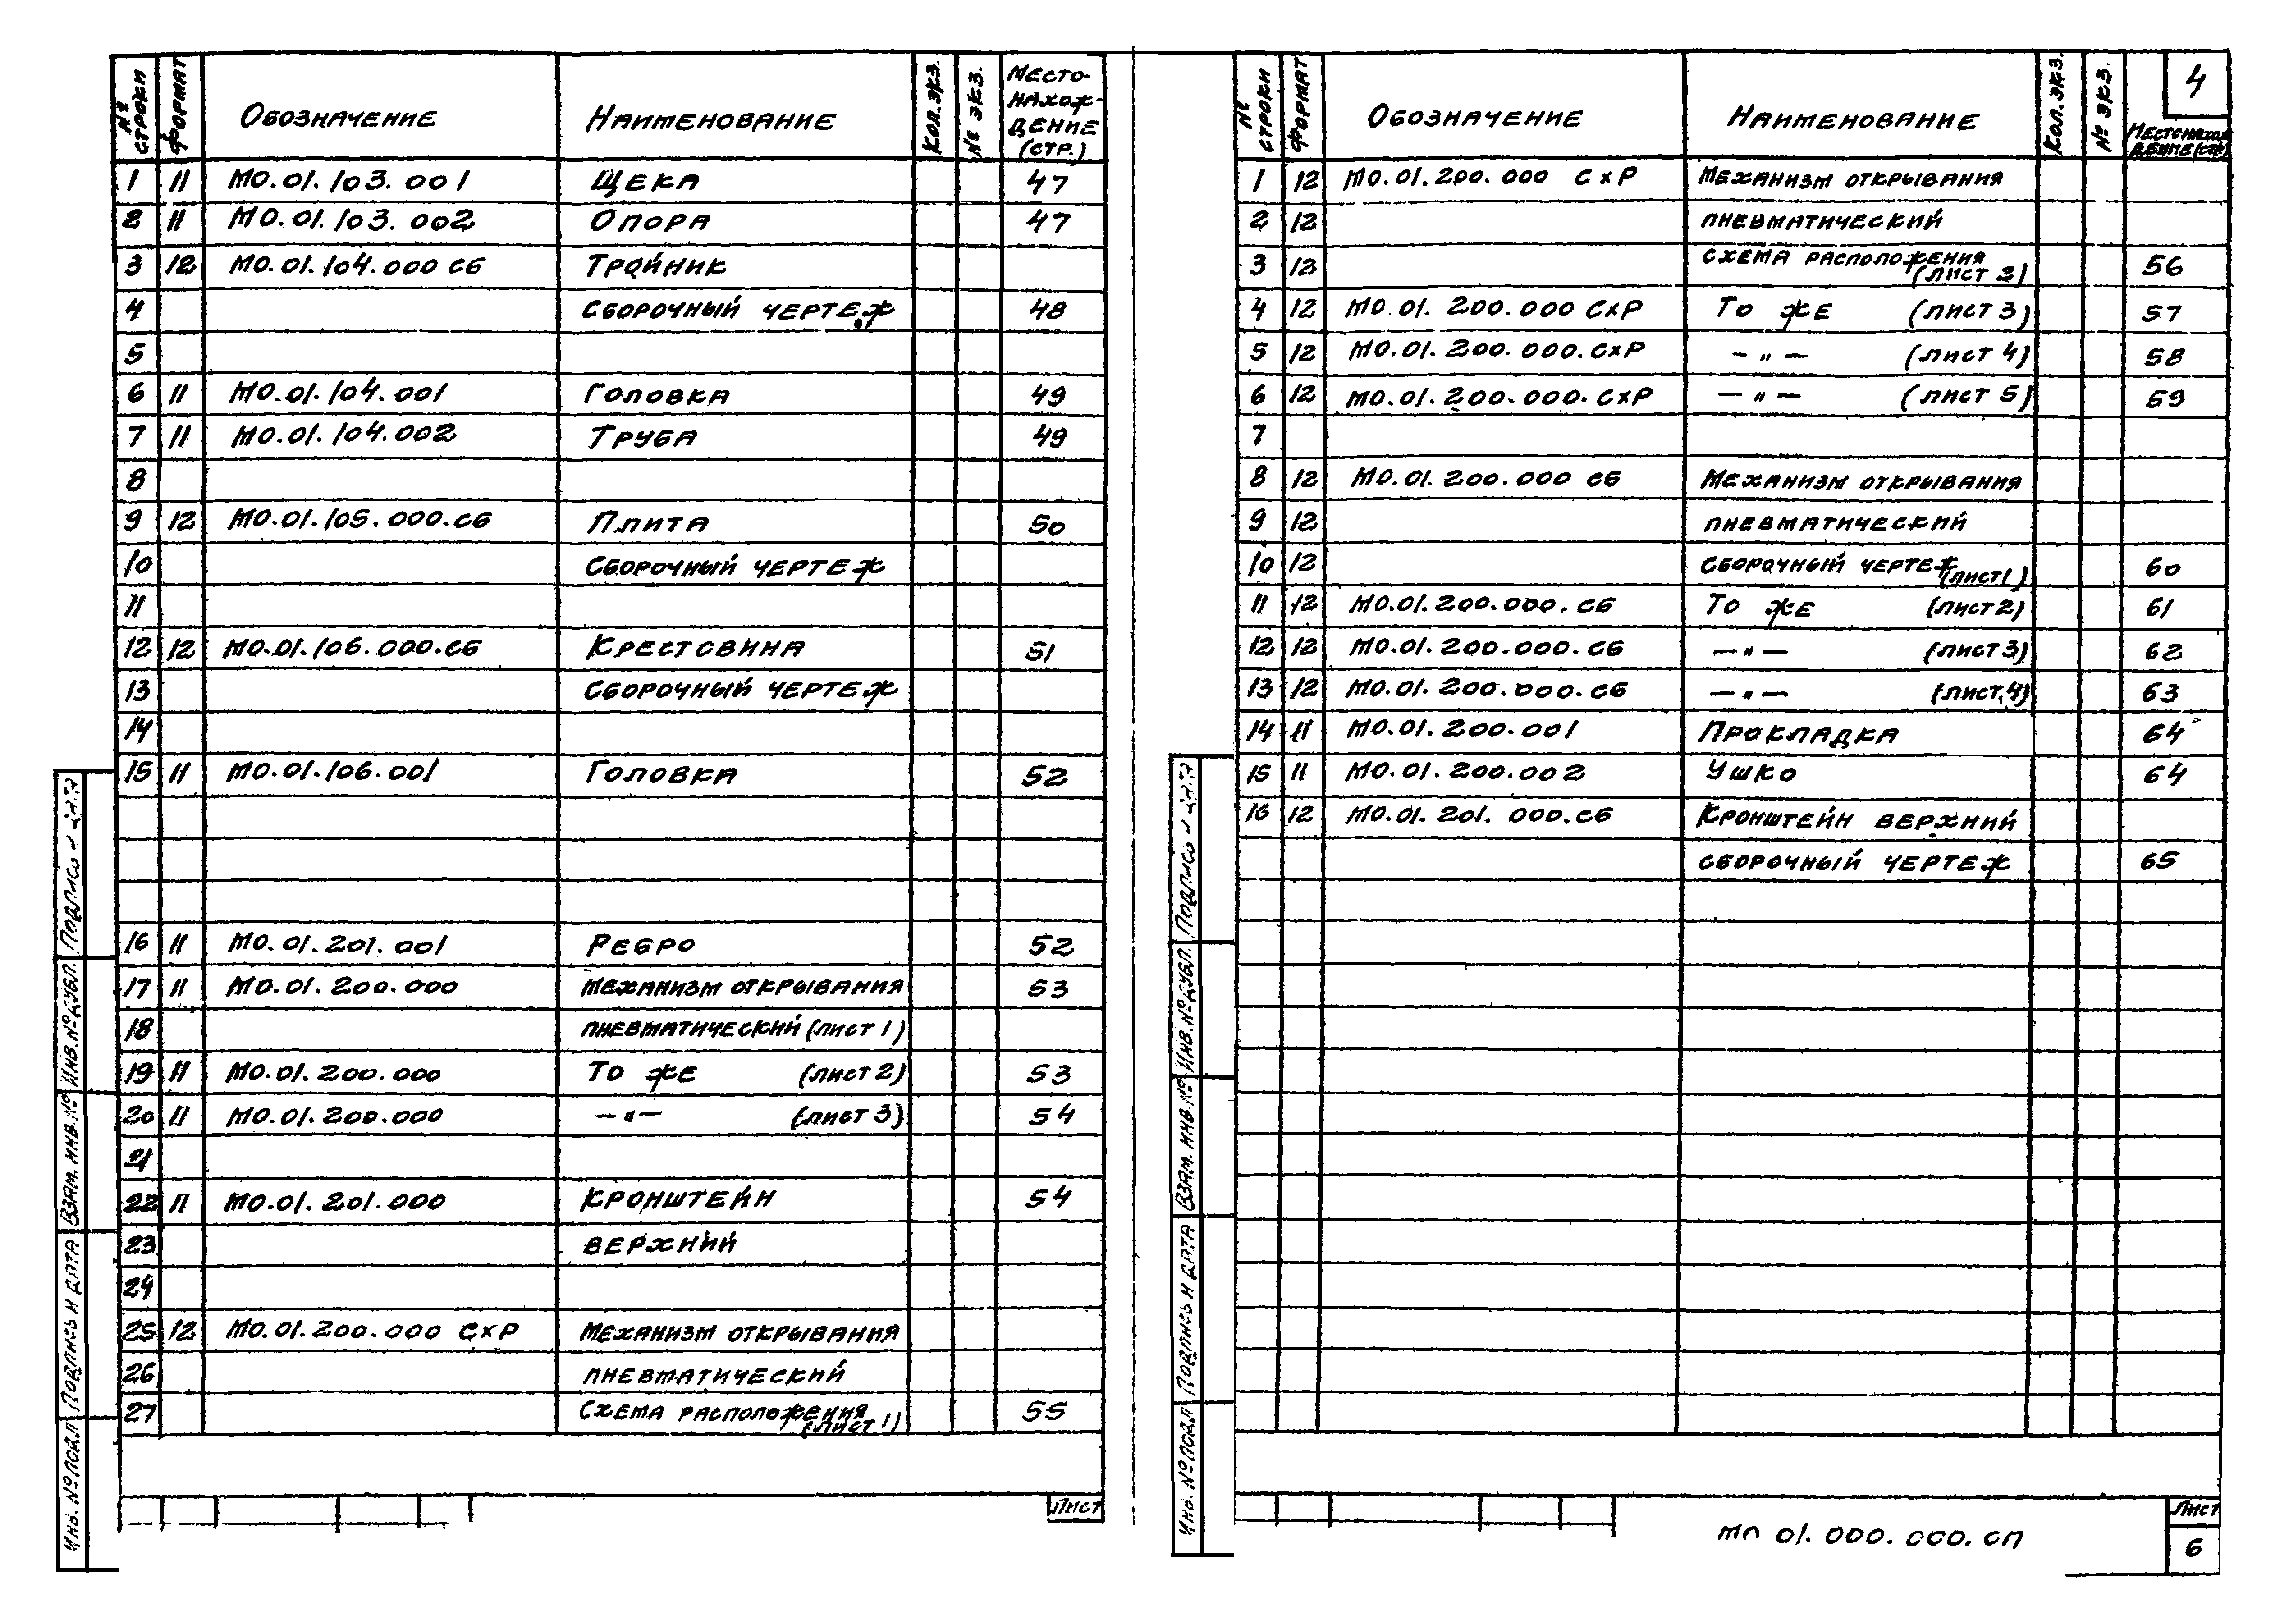 № СТРОКИ ФОРМАТ ОБОЗНАЧЕНИЕ НАИМЕНОВАНИЕ КОЛ.ЭКЗ. № ЭКЗ. МЕСТО-НАХОЖ-ДЕНИЕ (СТР.)
1 11 МО.01.103.001 ЩЕКА 47
2 11 МО.01.103.002 ОПОРА 47
3 12 МО.01.104.000 СБ ТРОЙНИК
4 СБОРОЧНЫЙ ЧЕРТЕЖ 48
5
6 11 МО.01.104.001 ГОЛОВКА 49
7 11 МО.01.104.002 ТРУБА 49
8
9 12 МО.01.105.000.СБ ПЛИТА 50
10 СБОРОЧНЫЙ ЧЕРТЕЖ
11
12 12 МО.01.106.000.СБ КРЕСТОВИНА 51
13 СБОРОЧНЫЙ ЧЕРТЕЖ
14
15 11 МО.01.106.001 ГОЛОВКА 52
16 11 МО.01.201.001 РЕБРО 52
17 11 МО.01.200.000 МЕХАНИЗМ ОТКРЫВАНИЯ 53
18 ПНЕВМАТИЧЕСКИЙ (ЛИСТ 1)
19 11 МО.01.200.000 ТО ЖЕ (ЛИСТ 2) 53
20 11 МО.01.200.000 —"— (ЛИСТ 3) 54
21
22 11 МО.01.201.000 КРОНШТЕЙН 54
23 ВЕРХНИЙ
24
25 12 МО.01.200.000 СХР МЕХАНИЗМ ОТКРЫВАНИЯ
26 ПНЕВМАТИЧЕСКИЙ
27 СХЕМА РАСПОЛОЖЕНИЯ (ЛИСТ 1) 55
ЛИСТ
ИНВ. № ПОДЛ ПОДПИСЬ И ДАТА ВЗАМ. ИНВ. № ИНВ. № ДУБЛ. ПОДПИСЬ
№ СТРОКИ ФОРМАТ ОБОЗНАЧЕНИЕ НАИМЕНОВАНИЕ КОЛ.ЭКЗ. № ЭКЗ. МЕСТОНАХОЖДЕНИЕ (СТР)
4
1 12 МО.01.200.000 СХР МЕХАНИЗМ ОТКРЫВАНИЯ
2 12 ПНЕВМАТИЧЕСКИЙ
3 12 СХЕМА РАСПОЛОЖЕНИЯ (ЛИСТ 2) 56
4 12 МО.01.200.000 СХР ТО ЖЕ (ЛИСТ 3) 57
5 12 МО.01.200.000.СХР —"— (ЛИСТ 4) 58
6 12 МО.01.200.000.СХР —"— (ЛИСТ 5) 59
7
8 12 МО.01.200.000 СБ МЕХАНИЗМ ОТКРЫВАНИЯ
9 12 ПНЕВМАТИЧЕСКИЙ
10 12 СБОРОЧНЫЙ ЧЕРТЕЖ (ЛИСТ 1) 60
11 12 МО.01.200.000.СБ ТО ЖЕ (ЛИСТ 2) 61
12 12 МО.01.200.000.СБ —"— (ЛИСТ 3) 62
13 12 МО.01.200.000.СБ —"— (ЛИСТ 4) 63
14 11 МО.01.200.001 ПРОКЛАДКА 64
15 11 МО.01.200.002 УШКО 64
16 12 МО.01.201.000.СБ КРОНШТЕЙН ВЕРХНИЙ
СБОРОЧНЫЙ ЧЕРТЕЖ 65
МО 01.000.000.СП
ЛИСТ
6
ИНВ. № ПОДЛ ПОДПИСЬ И ДАТА ВЗАМ. ИНВ. № ИНВ. № ДУБЛ. ПОДПИСЬ